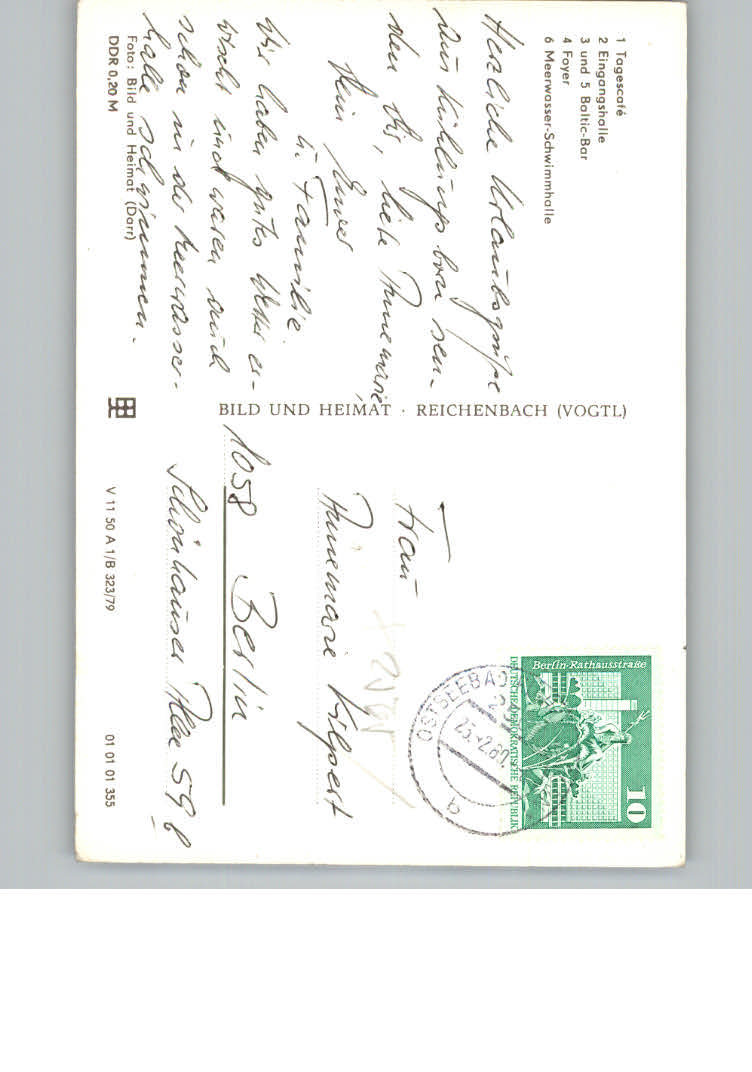 1 Tagescafé
2 Eingangshalle
3 und 5 Baltic-Bar
4 Foyer
6 Meerwasser-Schwimmhalle
Herzliche Urlaubsgrüße
aus Kühlungsborn sen-
den Dir, liebe Annemarie,
Dein
u. Familie.
Wir haben gutes Wetter er-
wischt und waren auch
schon in der Meerwasser-
halle schwimmen.
Foto: Bild und Heimat (Darr)
DDR 0,20 M
BILD UND HEIMAT · REICHENBACH (VOGTL)
Berlin-Rathausstraße
10
DEUTSCHE DEMOKRATISCHE REPUBLIK
OSTSEEBAD
25.-2.80
a
Frau
Annemarie Kilpert
1058 Berlin
Schönhauser Allee 59 b
V 11 50 A 1/B 323/79
01 01 01 355